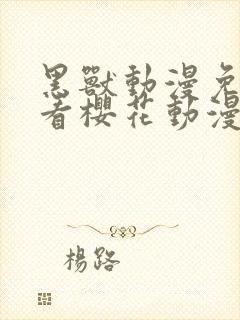 黑獸動漫免
看櫻花動漫
楊路